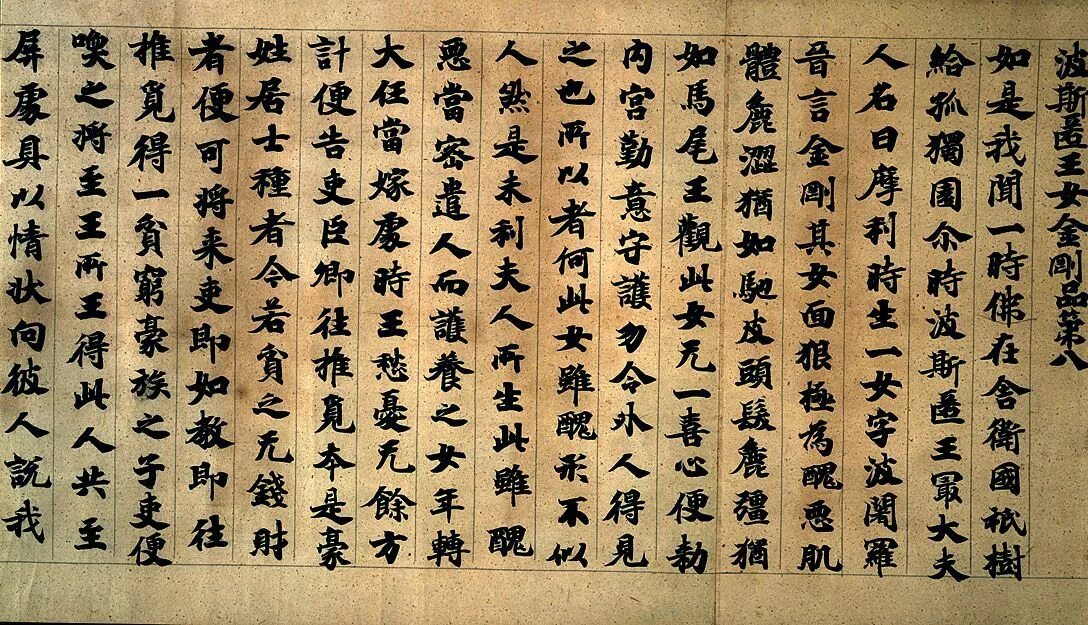 波斯匿王女金剛品第八
如是我聞一時佛在舍衛國祇樹
給孤獨園尒時波斯匿王冣大夫
人名曰摩利時生一女字波闍羅
晉言金剛其女面狠極為醜惡肌
體麁澀猶如馳皮頭髮麁彊猶
如馬尾王觀此女无一喜心便勑
内宮勤意守護勿令外人得見
之也所以者何此女雖醜形不似
人然是末利夫人所生此雖醜
惡當密遣人而護養之女年轉
大任當嫁處時王愁憂无餘方
計便告吏臣卿往推覓本是豪
姓居士種者今若貧之无錢財
者便可將来吏即如教即往
推覓得一貧窮豪族之子吏便
喚之將至王所王得此人共至
屏處具以情狀向彼人說我